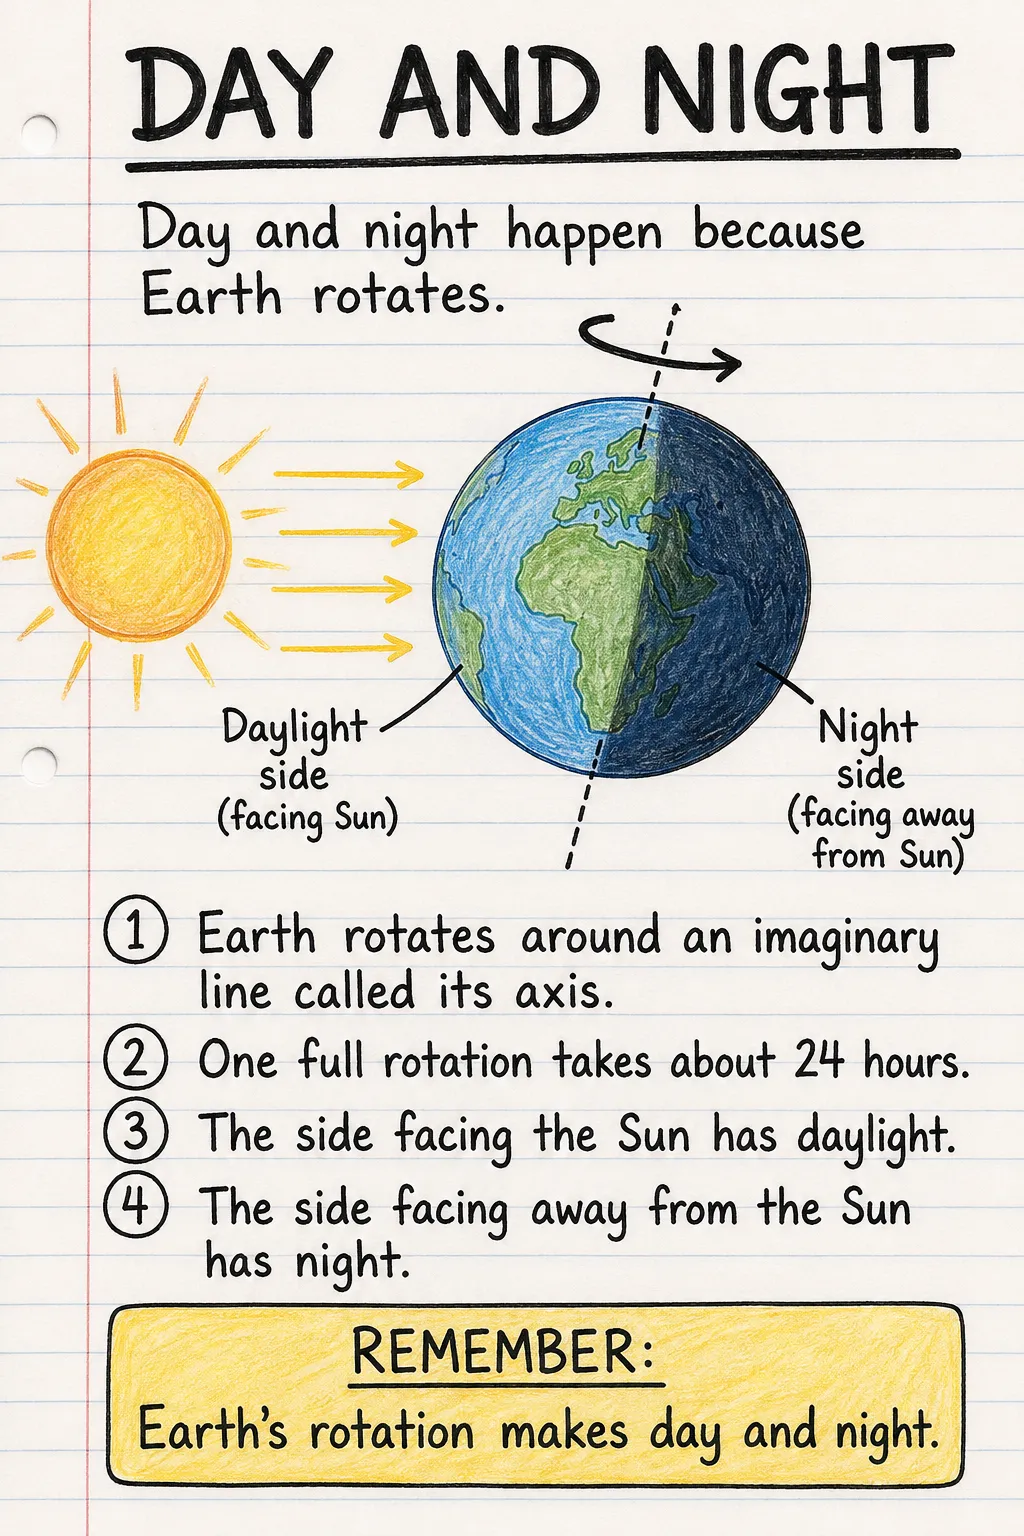 DAY AND NIGHT
Day and night happen because
Earth rotates.
Daylight
side
(facing Sun)
Night
side
(facing away
from Sun)
1 Earth rotates around an imaginary
line called its axis.
2 One full rotation takes about 24 hours.
3 The side facing the Sun has daylight.
4 The side facing away from the Sun
has night.
REMEMBER:
Earth's rotation makes day and night.